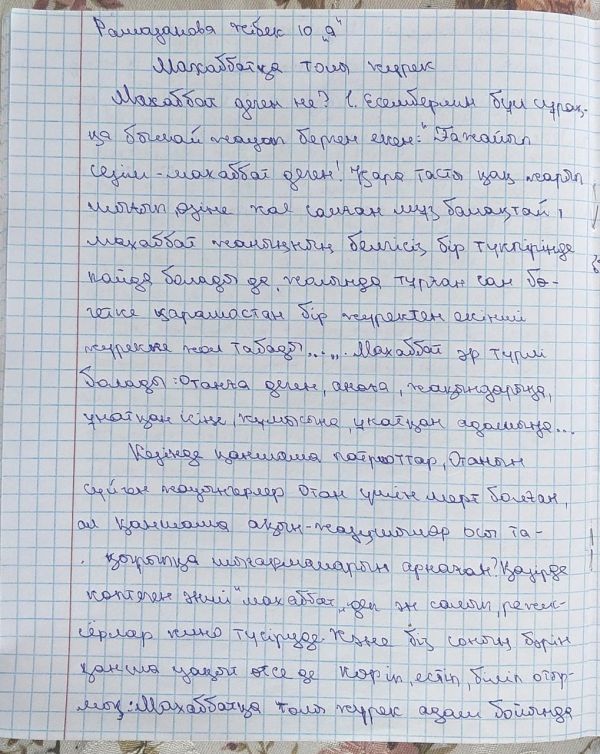 Рамазанова Жібек 10 "а"
Махаббатқа толы жүрек
Махаббат деген не? І. Есемберлин бұл сұрақ-
қа былай жауап берген екен: "Ғажайып
сезім - махаббат деген! Қара тасты қақ жарып
шығып, өзіне жол салған мұз балақтай,
махаббат жаныңның белгісіз бір түкпірінде
пайда болады да, жолында тұрған сан бө-
гетке қарамастан бір жүректен екінші
жүрекке жол табады...". Махаббат әр түрлі
болады: Отанға деген, анаға, жақындарыңа,
ұнатқан ісіңе, жұмысыңа, ұнатқан адамыңа...
Кезінде қаншама патриоттар, Отанын
сүйген жауынгерлер Отан үшін мерт болған,
ал қаншама ақын-жазушылар осы та-
қырыпқа шығармаларын арнаған? Қазірде
көптеген әнші "махаббат" деп ән салып, режис-
сёрлар кино түсіруде. Және біз соның бәрін
қанша уақыт өтсе де көріп, естіп, біліп отыр-
мыз. Махаббатқа толы жүрек адам бойында